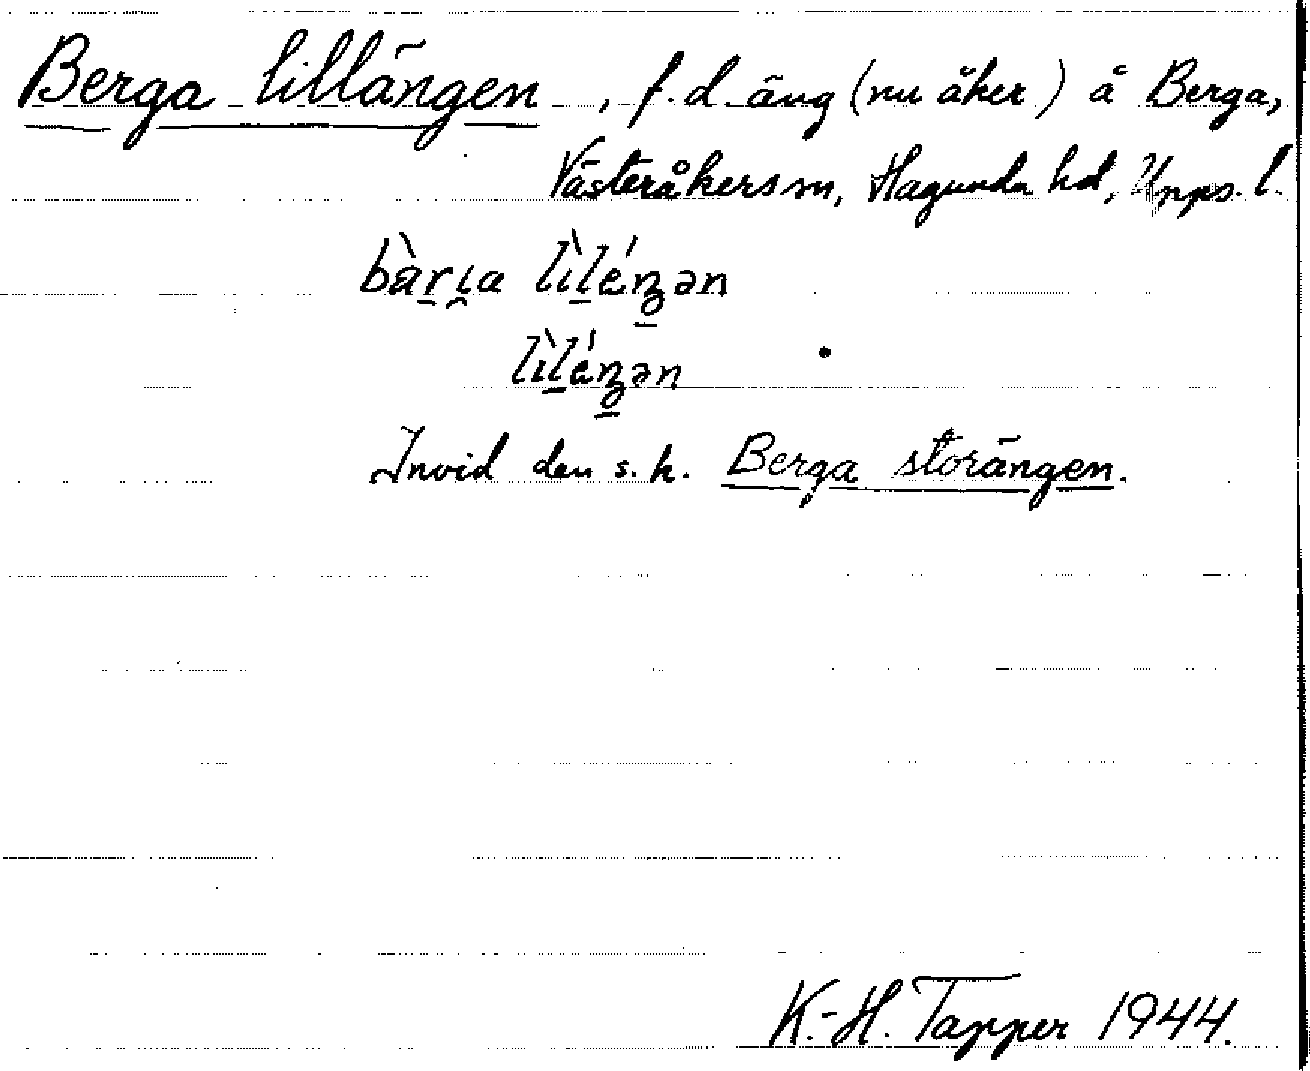 Berga lillängen, f.d. äng (nu åker) å Berga,
Västeråkers sn, Hagunda hd, Upps. l.
bàrı̯a lìléŋən
lìléŋən
Invid den s.k. Berga storängen.
K.-H. Tapper 1944.